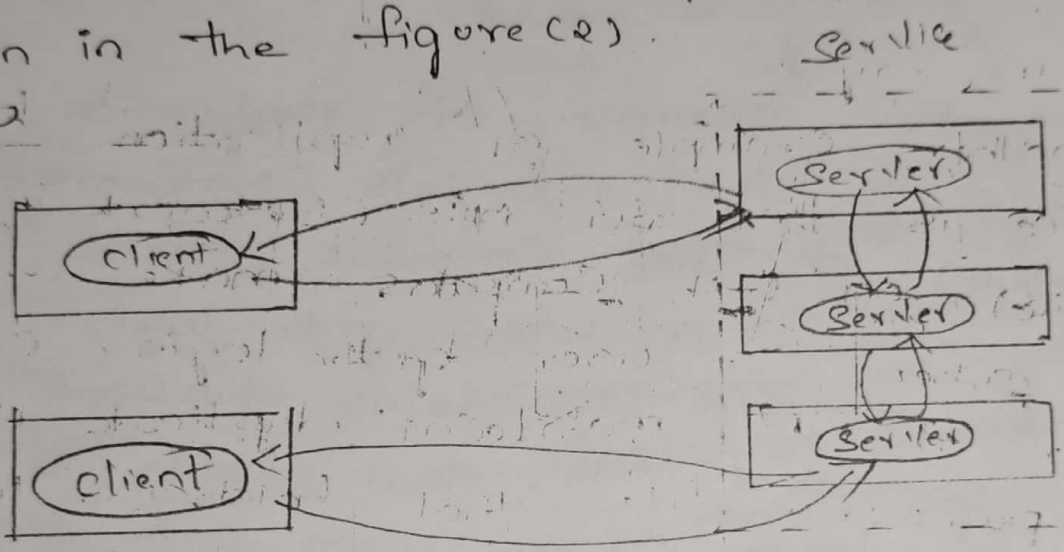 n in the figure (2).
Service
Server
Client
Server
Server
Client